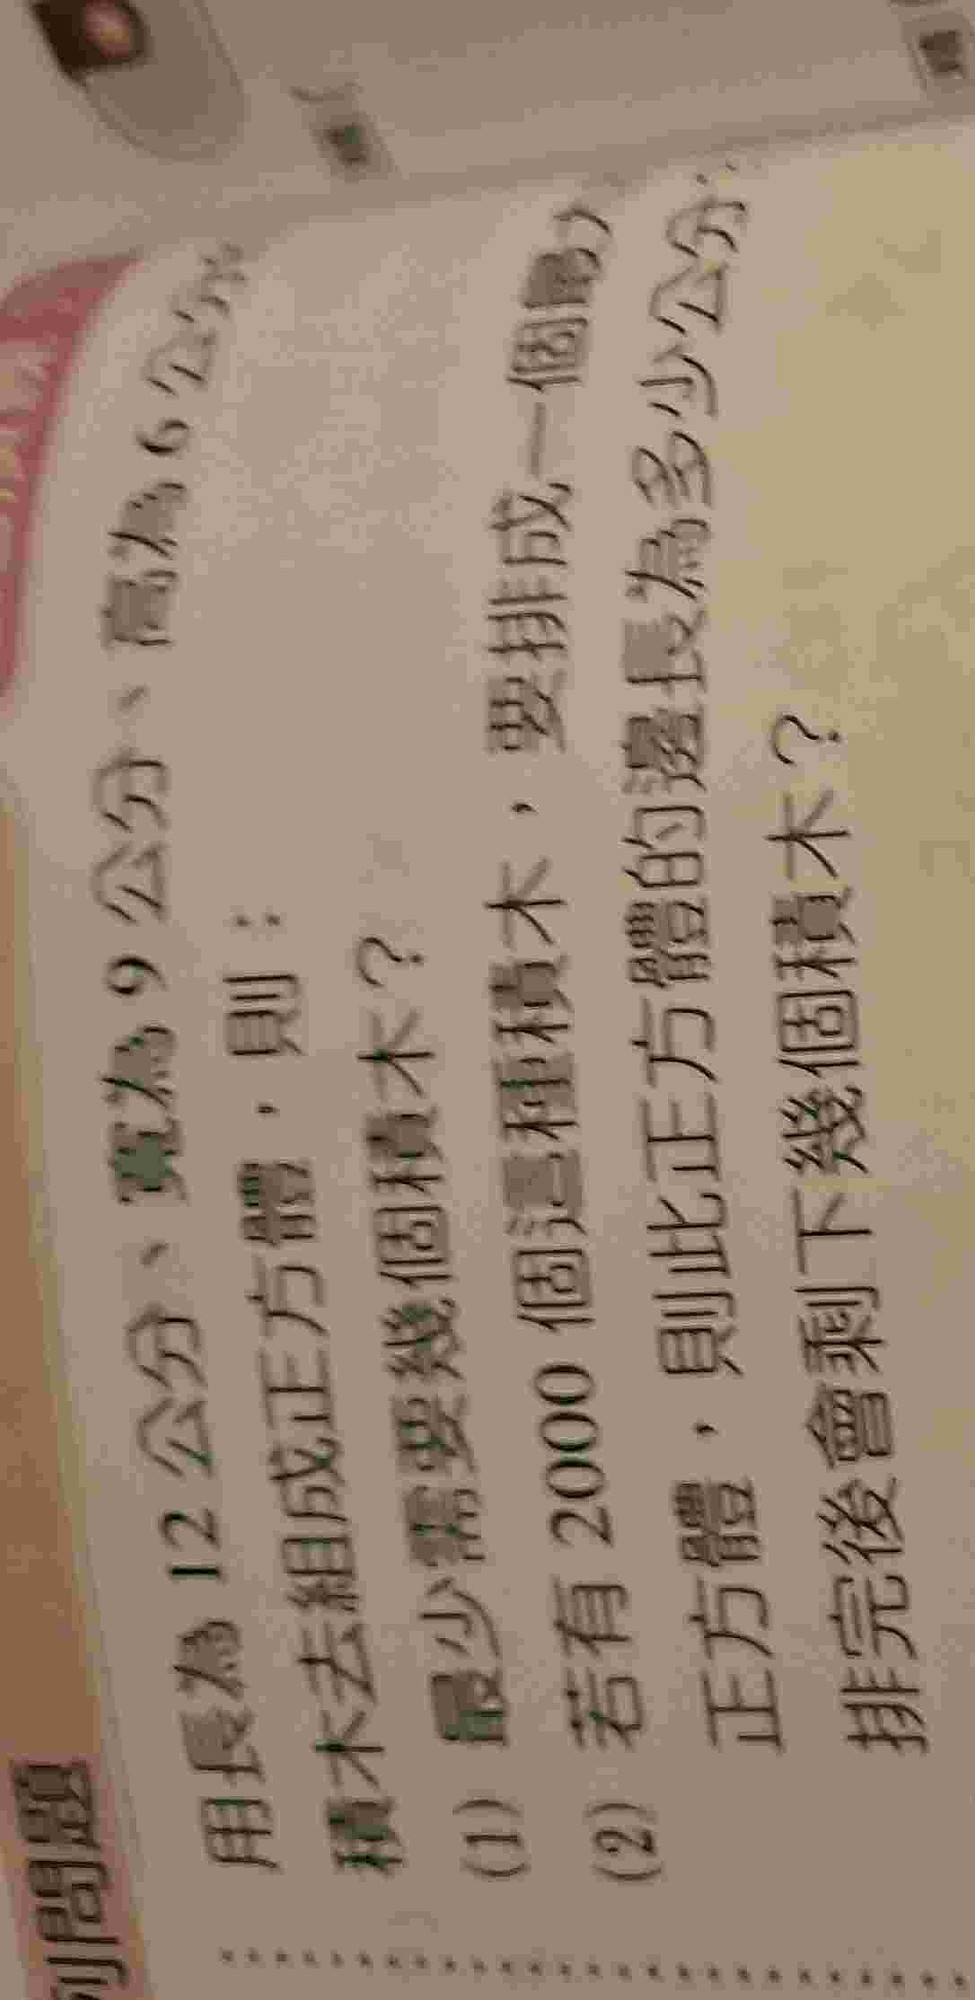 列問題
用長為 12 公分、寬為 9 公分、高為 6 公分
積木去組成正方體，則：
(1) 最少需要幾個積木？
(2) 若有 2000 個這種積木，要排成一個最大
正方體，則此正方體的邊長為多少公分？
排完後會剩下幾個積木？